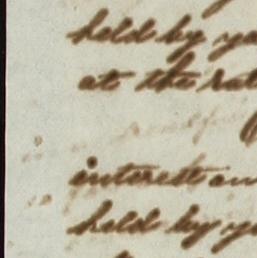 held by yo
at the rat
interest an
held by yo